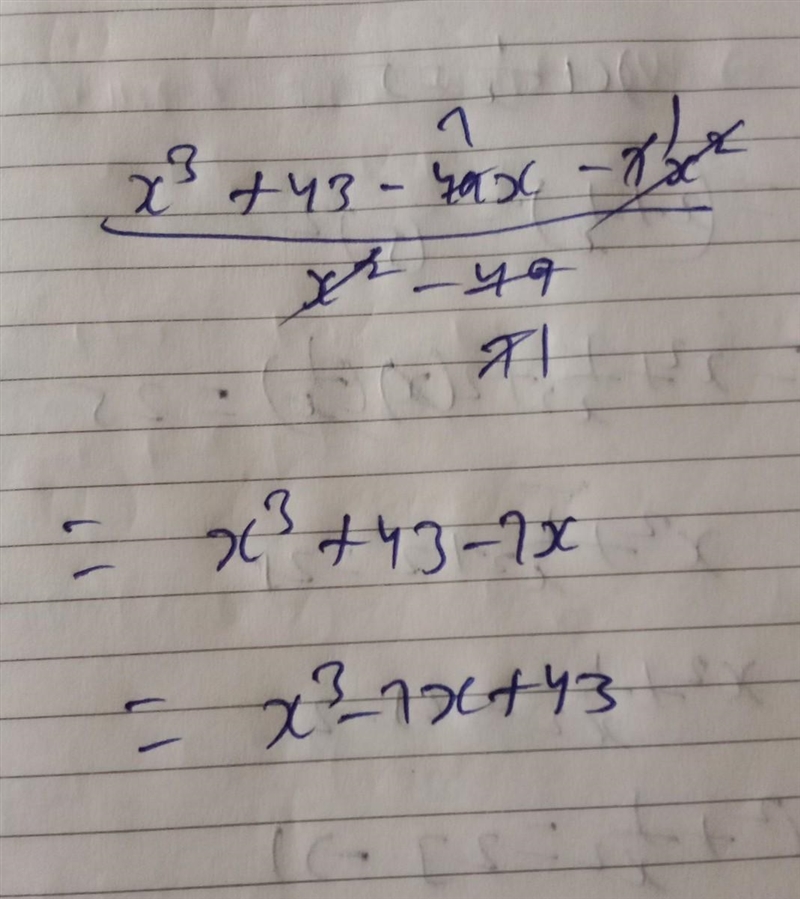 7 1
x³ + 43 - 49x - 7x²
x² - 49
71
= x³ + 43 - 7x
= x³ - 7x + 43